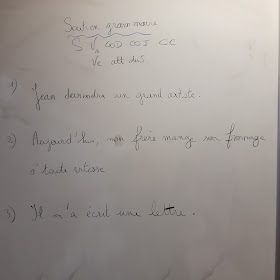 Soutien grammaire
S Va COD COI CC
Ve att du S
1) Jean deviendra un grand artiste.
2) Aujourd'hui, mon frère mange son fromage
à toute vitesse
3) Il m'a écrit une lettre.